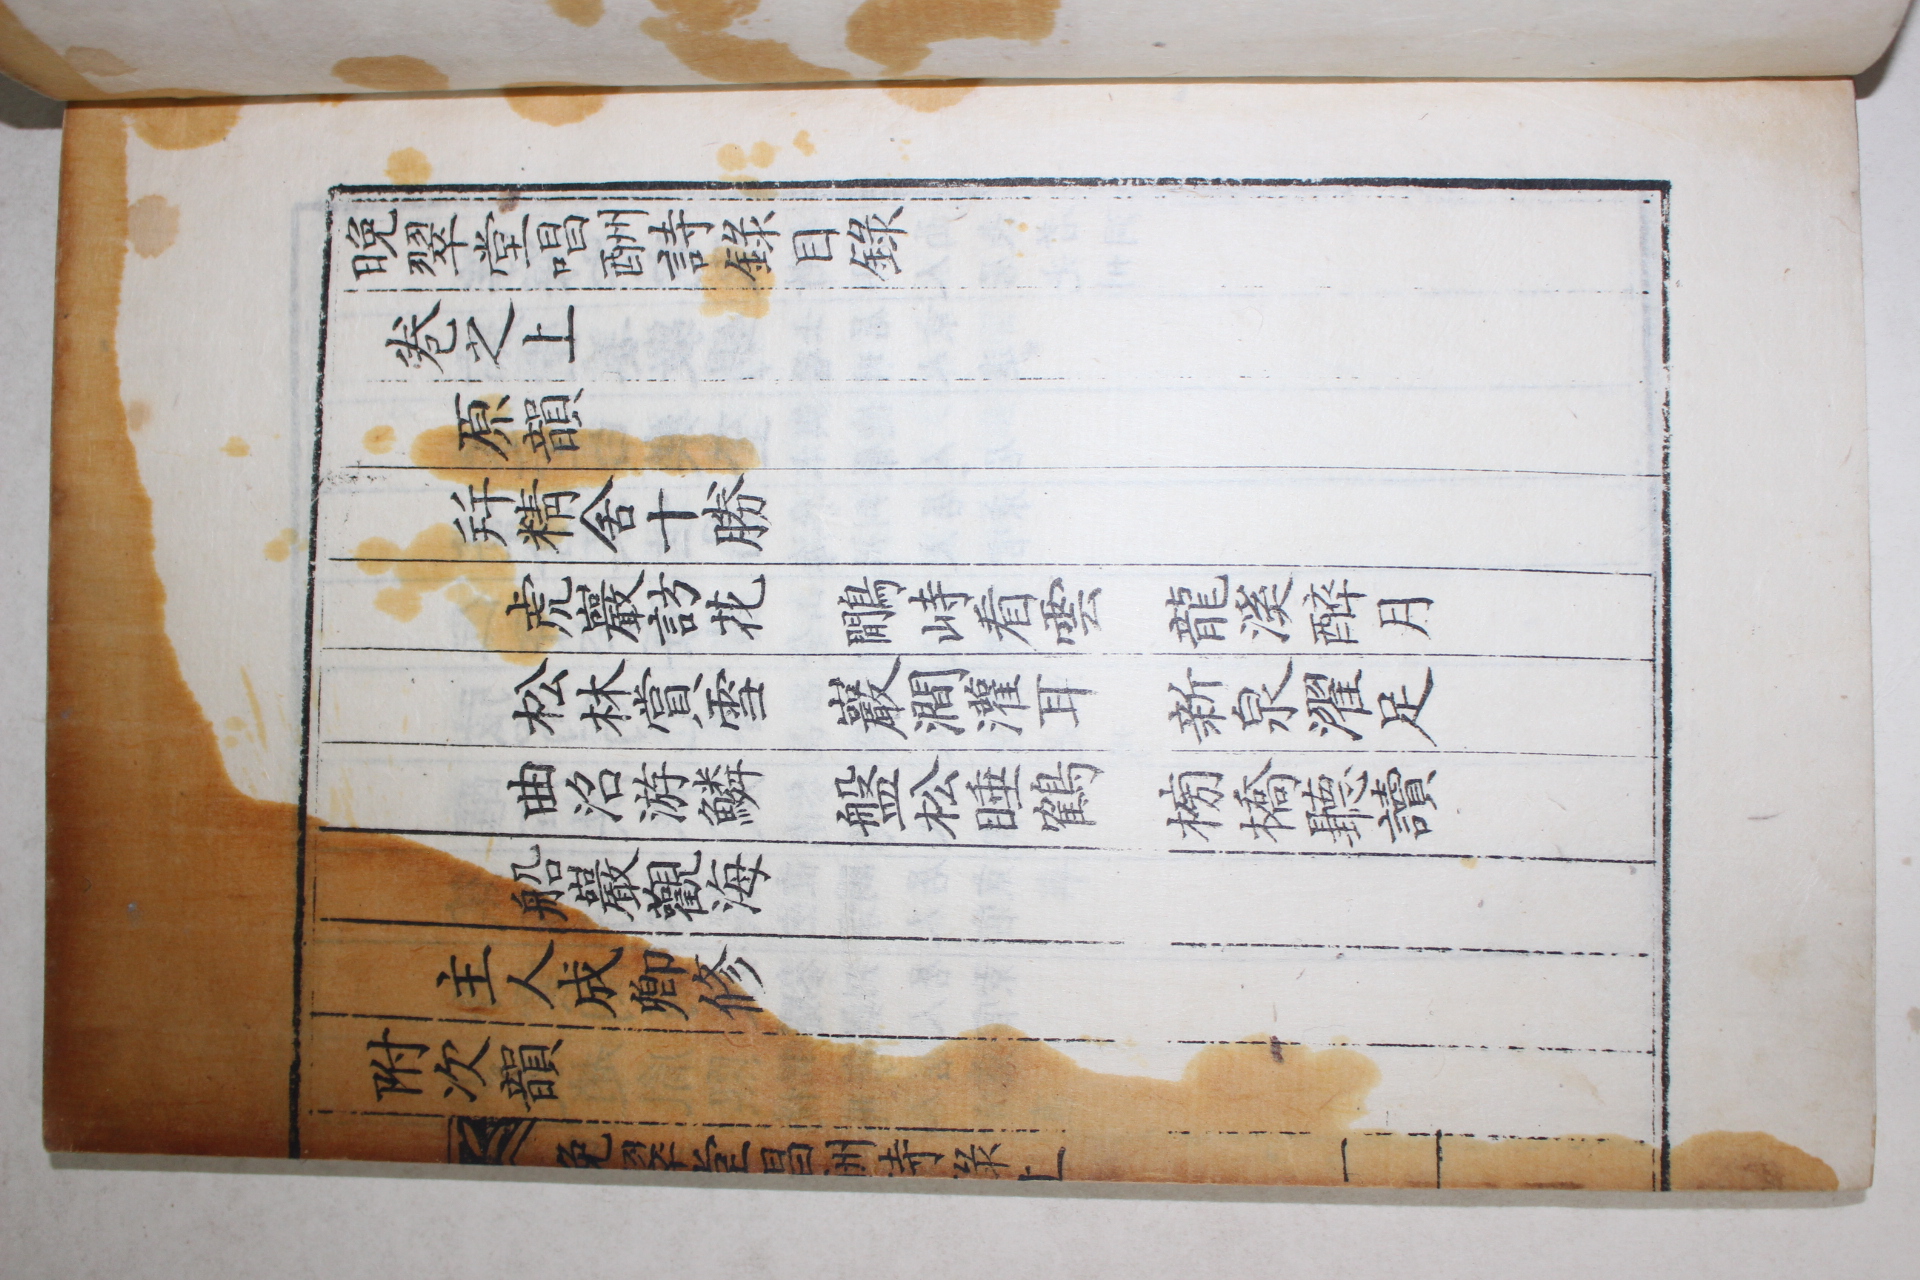 晚翠堂唱酬詩錄目錄
卷之上
原韻
幷精舍十勝
虎巖訪花 鷳峙看雲 龍溪醉月
松林賞雪 巖澗灌耳 新泉濯足
曲沼游鱗 盤松睡鶴 榜橋聽讀
船巖觀海
主人成卿修
附次韻
晚翠堂唱酬詩錄上 一